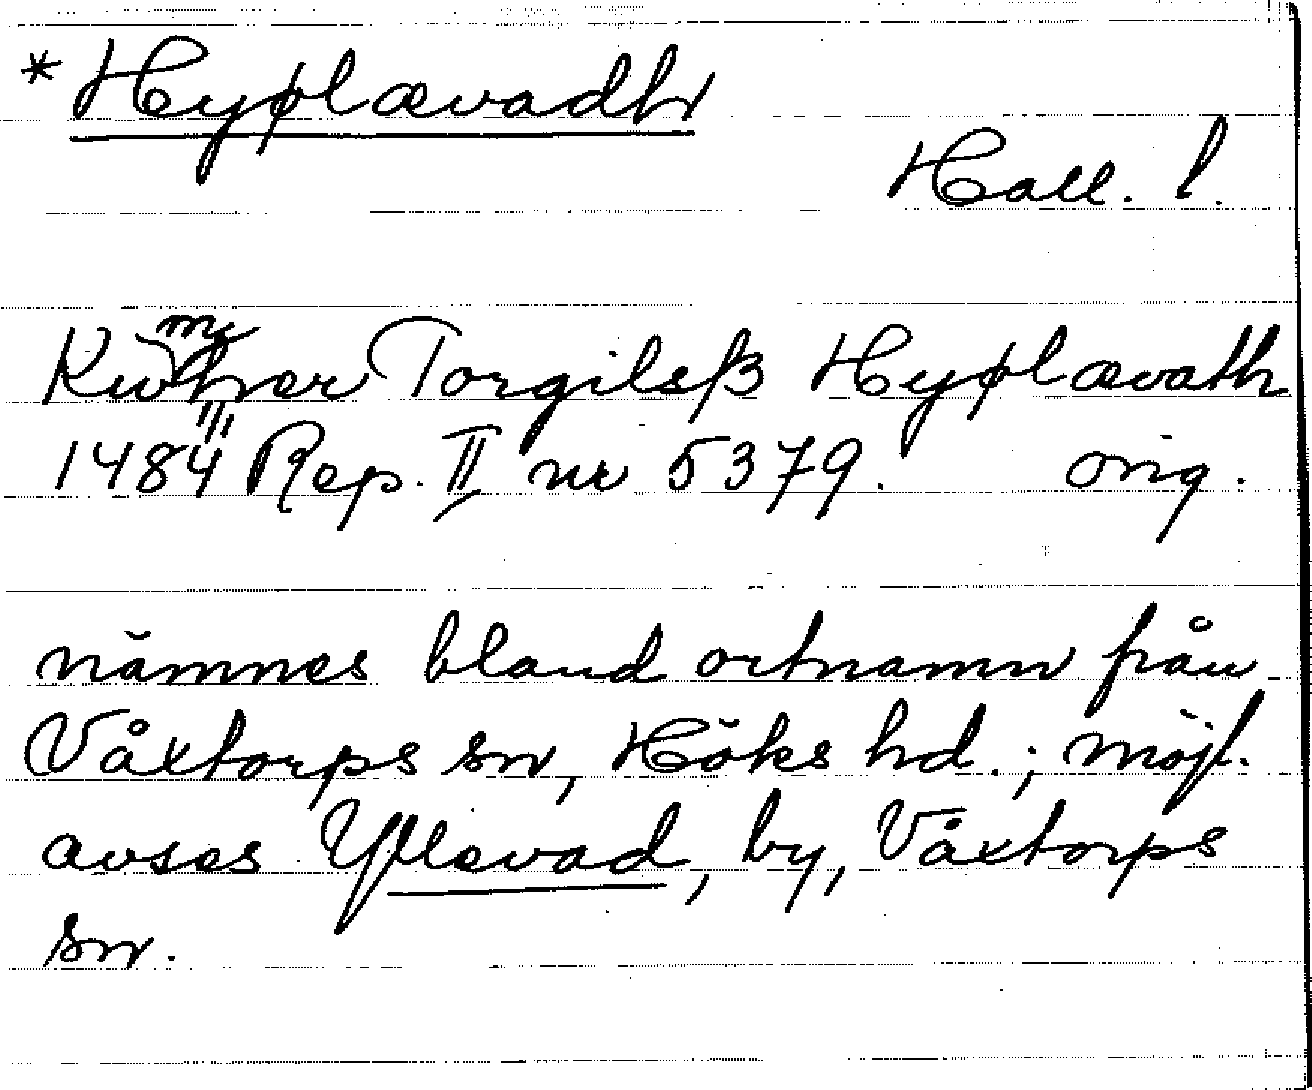 * Hyøplævadh
Hall. l.
Torgilsß Hyøplævath
1484 Rep. II nr 5379. orig.
nämnes bland ortnamn från
Våxtorps sn, Höks hd.; möjl.
avses Yllevad, by, Våxtorps
sn.